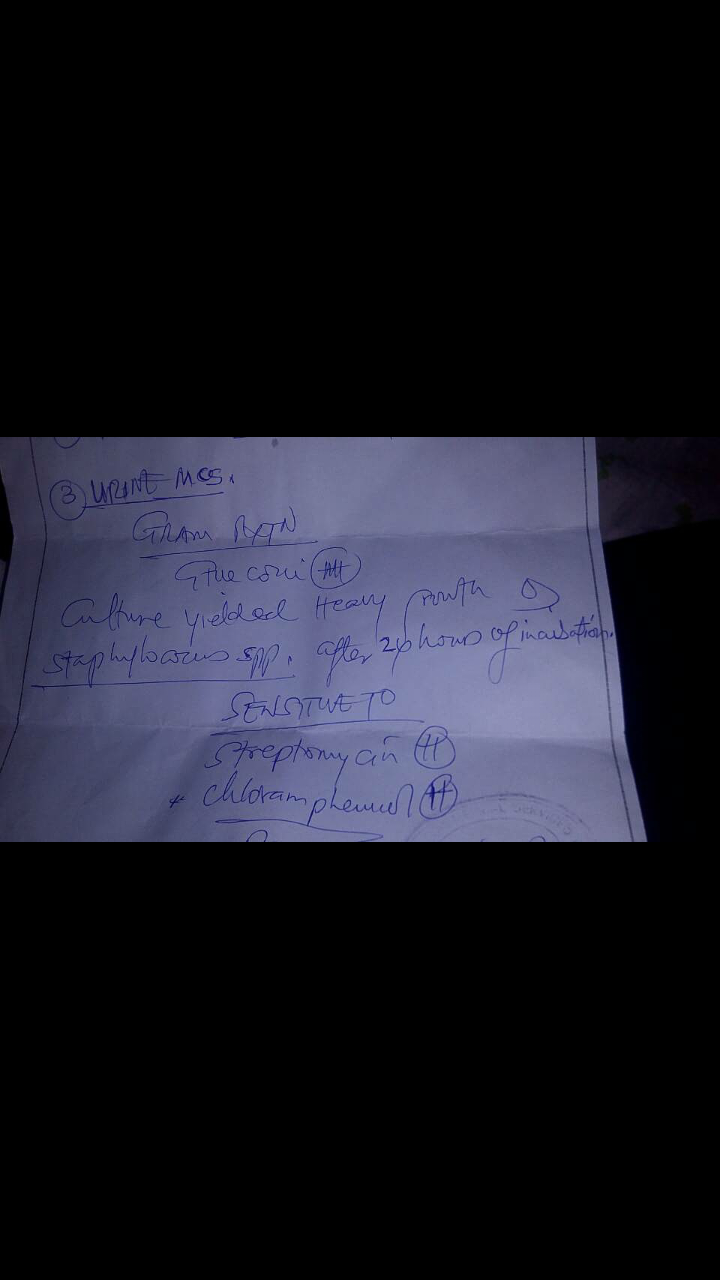 ③ URINE MCS.
GRAM RXTN
G+ve cocci (+++)
Culture yielded Heavy growth of
staphylococcus spp. after 24 hours of incubation.
SENSITIVE TO
Streptomycin (++)
* chloramphenicol (++)